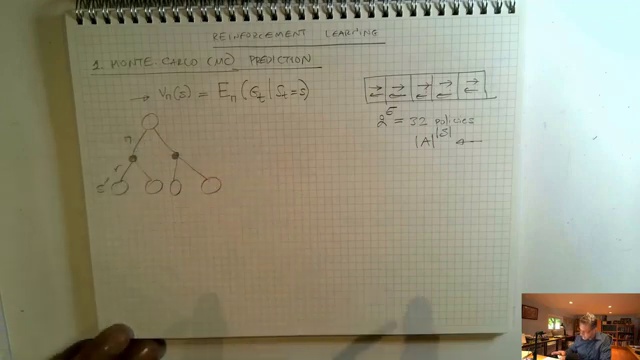 REINFORCEMENT LEARNING
1. MONTE-CARLO (MC) PREDICTION
→ Vπ(s) = Eπ(Gt | St = s)
2⁵ = 32 policies
|A|^|S| ←
π
r
s'